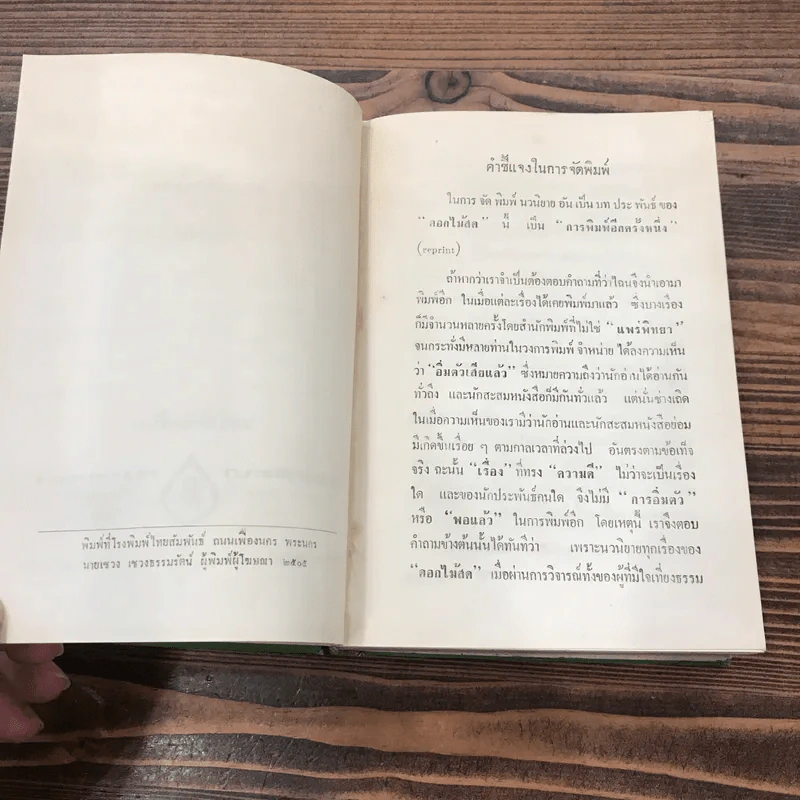 พิมพ์ที่โรงพิมพ์ไทยสัมพันธ์ ถนนเฟื่องนคร พระนคร
นายเชวง เชวงธรรมรัตน์ ผู้พิมพ์ผู้โฆษณา ๒๕๐๕
คำชี้แจงในการจัดพิมพ์
ในการ จัด พิมพ์ นวนิยาย อัน เป็น บท ประ พันธ์ ของ
“ดอกไม้สด” นี้ เป็น “การพิมพ์อีกครั้งหนึ่ง”
(reprint)
ถ้าหากว่าเราจำเป็นต้องตอบคำถามที่ว่าไฉนจึงนำเอามา
พิมพ์อีก ในเมื่อแต่ละเรื่องได้เคยพิมพ์มาแล้ว ซึ่งบางเรื่อง
ก็มีจำนวนหลายครั้งโดยสำนักพิมพ์ที่ไม่ใช่ “แพร่พิทยา”
จนกระทั่งมีหลายท่านในวงการพิมพ์ จำหน่าย ได้ลงความเห็น
ว่า “อิ่มตัวเสียแล้ว” ซึ่งหมายความถึงว่านักอ่านได้อ่านกัน
ทั่วถึง และนักสะสมหนังสือก็มีกันทั่วแล้ว แต่นั่นช่างเถิด
ในเมื่อความเห็นของเรามีว่านักอ่านและนักสะสมหนังสือย่อม
มีเกิดขึ้นเรื่อย ๆ ตามกาลเวลาที่ล่วงไป อันตรงตามข้อเท็จ
จริง ฉะนั้น “เรื่อง” ที่ทรง “ความดี” ไม่ว่าจะเป็นเรื่อง
ใด และของนักประพันธ์คนใด จึงไม่มี “การอิ่มตัว”
หรือ “พอแล้ว” ในการพิมพ์อีก โดยเหตุนี้ เราจึงตอบ
คำถามข้างต้นนั้นได้ทันทีว่า เพราะนวนิยายทุกเรื่องของ
“ดอกไม้สด” เมื่อผ่านการวิจารณ์ทั้งของผู้ที่มีใจเที่ยงธรรม